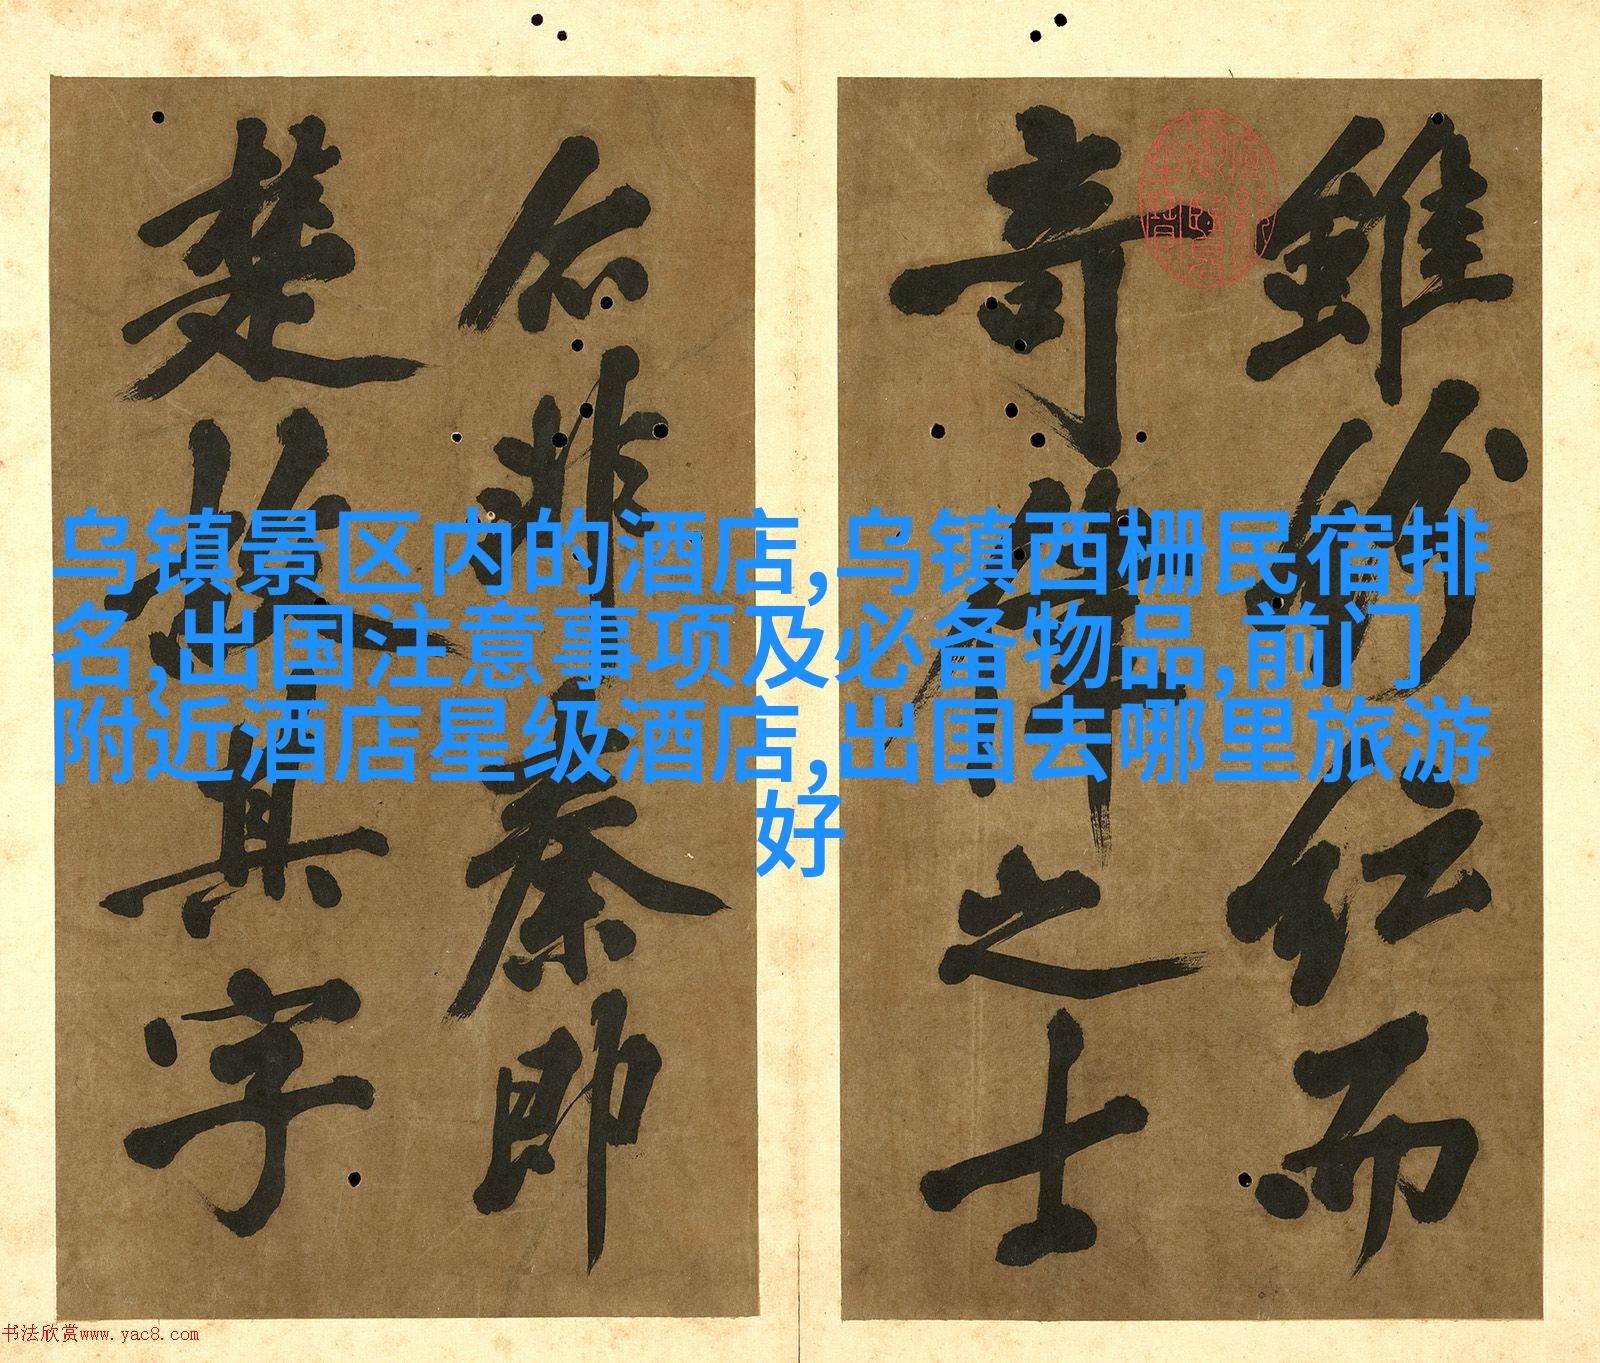 乌镇景区内的酒店,乌镇西栅民宿排
名,出国注意事项及必备物品,前门
附近酒店星级酒店,出国去哪里旅游
好
雖紛紜而
奇偉之士
非秦即
楚故其字
宣統御覽之寶
书法欣赏www.yac8.com